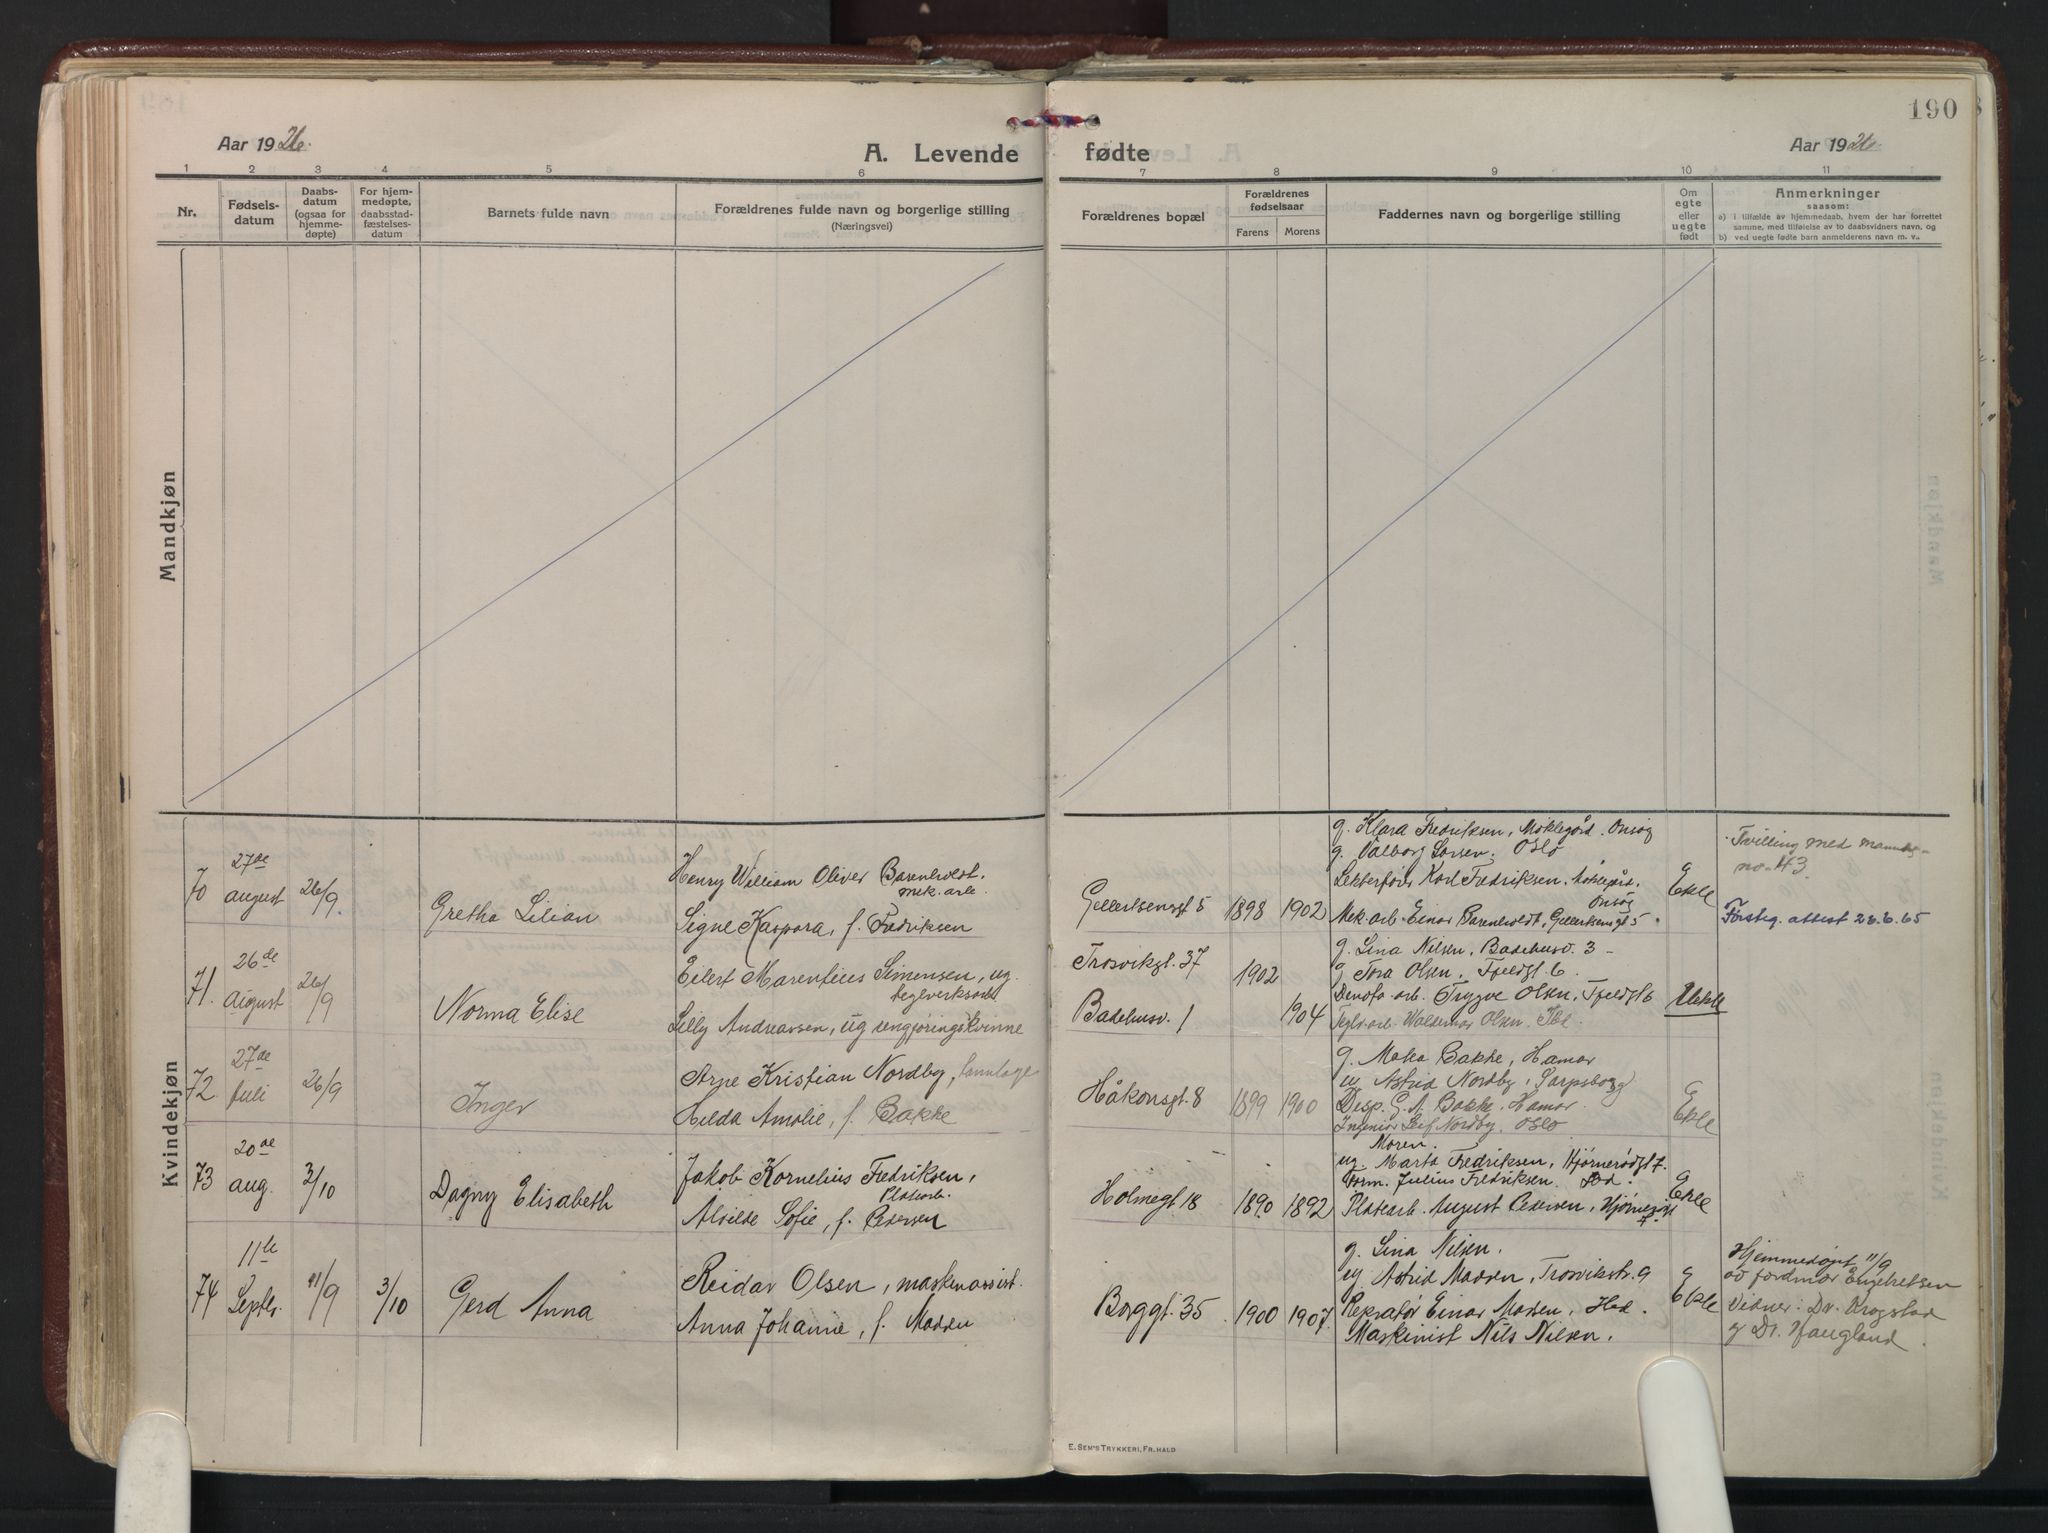 190
Aar 1926.
A. Levende
fødte
Aar 1926.
1 2 3 4 5 6 7 8 9 10 11
Nr.
Fødsels-
datum
Daabs-
datum
(ogsaa for
hjemme-
døpte)
For hjem-
medøpte,
daabsstad-
fæstelses-
datum
Barnets fulde navn
Forældrenes fulde navn og borgerlige stilling
(Næringsvei)
Forældrenes bopæl
Forældrenes
fødselsaar
Farens
Morens
Faddernes navn og borgerlige stilling
Om
egte
eller
uegte
født
Anmerkninger
saasom:
a) i tilfælde av hjemmedaab, hvem der har forrettet
samme, med tilføielse av to daabsvidners navn, og
b) ved uegte fødte barn anmelderens navn m. v.
Mandkjøn
Kvindekjøn
70
27de
august
26/9
Gretha Lilian
Henry William Oliver Barenholdt,
mek. arb.
Signe Kaspara, f. Fredriksen
Gellertsensgt 5
1898
1902
g. Klara Fredriksen, Møklegård. Onsøy
g. Valborg Larsen. Oslo
Karl Fredriksen, Møklegård,
Onsøy
Mek. arb. Einar Barenholdt, Gellertsensgt 5.
E
Ekte
Tvilling med
no. 43.
Førsteg. attest 28.6.65
71.
26de
August
26/9
Norma Elise
Eilert Marentius Simensen, ug.
teglverksarb.
Lilly Andreassen, ug rengjøringskvinne
Trosvikgt. 37
Badehusv. 1
1902
1904
g. Lina Nilsen, Badehusv. 3 -
g. Tora Olsen, Fjeldgt. 6.
Denofa-arb. Trygve Olsen, Fjeldgt 6
Teglv.arb. Waldemar Olsen.
Uekte
72
27de
Juli
26/9
Inger
Arne Kristian Nordby, tannlæge
Hilda Amalie, f. Bakke
Håkonsgt. 8
1899
1900
g. Bakke, Hamar
ug. Astrid Nordby, Sarpsborg
Disp. G. A. Bakke, Hamar.
Ingeniør Leif Nordby, Oslo
E
Ekte
73
20de
aug.
3/10
Dagny Elisabeth
Jakob Kornelius Fredriksen,
Platearb.
Alvilde Sofie, f. Pedersen
Holmegt 18
1890
1892
Moren.
ug. Marta Fredriksen, Hjørnerødgt 7.
Form. Julius Fredriksen.
Platearb. August Pedersen,
E
Ekte
74
11te
Septbr.
11/9
3/10
Gerd Anna
Reidar Olsen, maskinassist.
Anna Johanne, f. Madsen
Borggt. 35
1900
1907
g. Lina Nilsen.
ug Astrid Madsen, Trosvikstr. 9
Reparatør Einar Madsen,
Maskinist Nils Nilsen.
E
Ekte
Hjemmedøpt 11/9
av jordmor Engebretsen
Vidner: Dr. Krogstad
g Dr. Haugland.
E. SEM'S TRYKKERI, FR.HALD